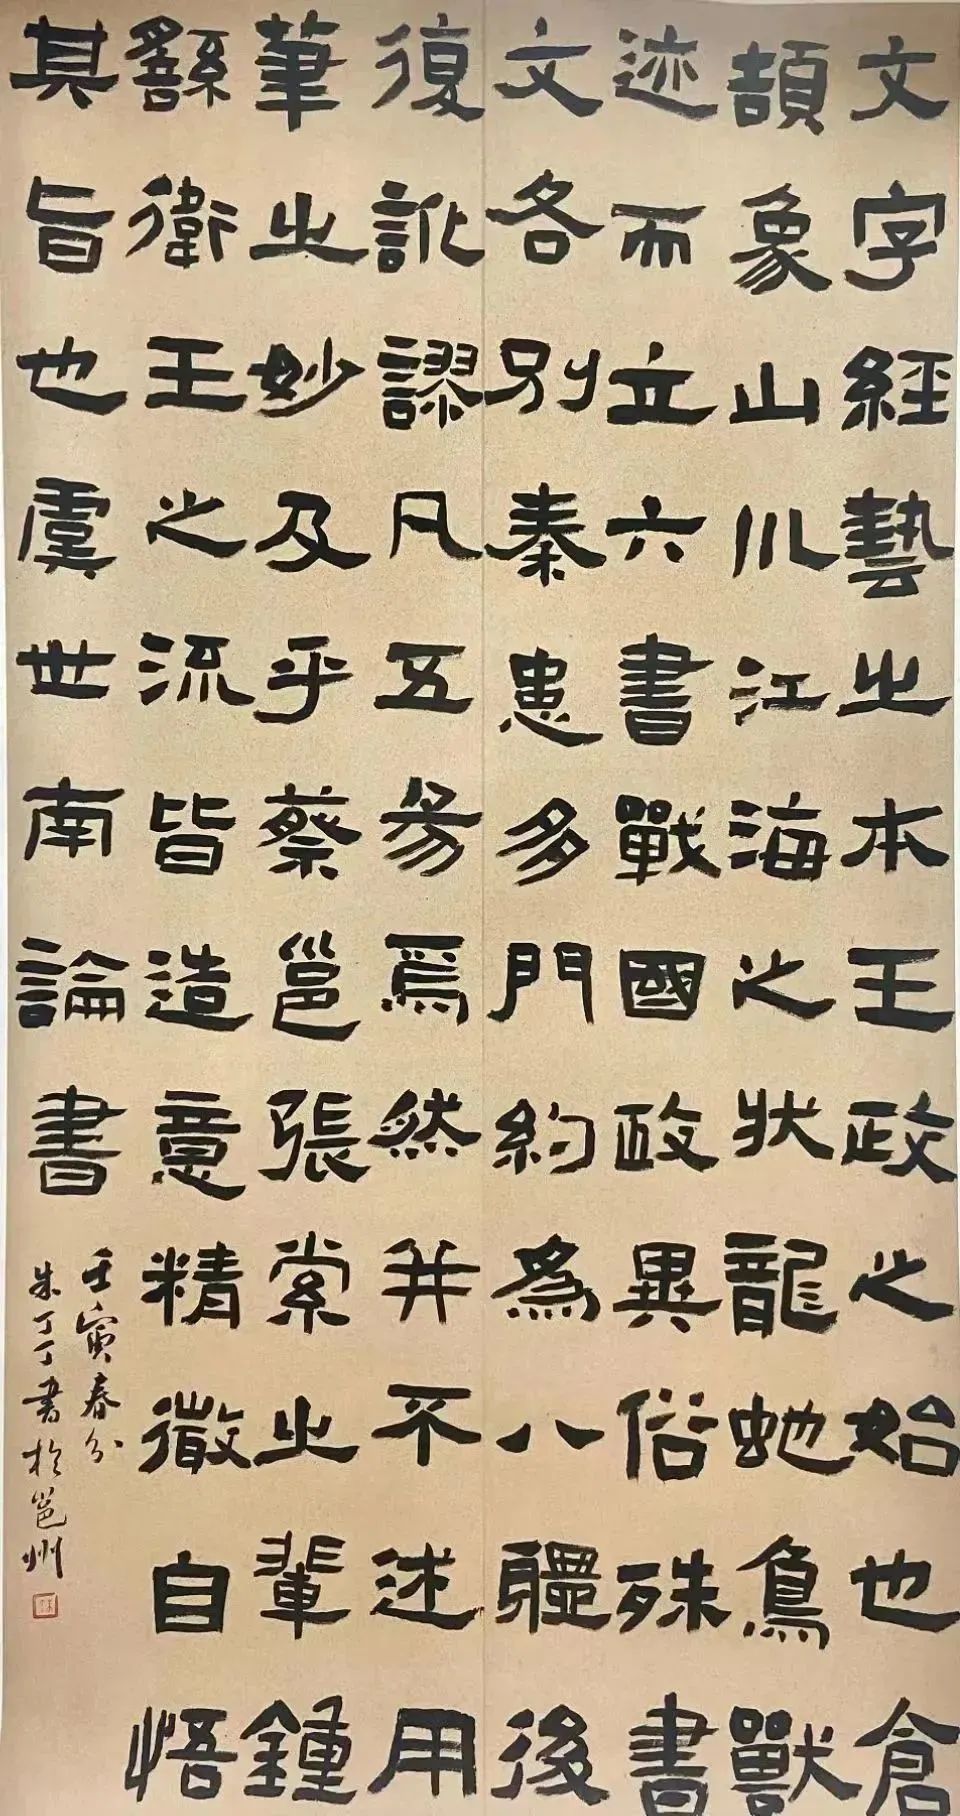 文字經藝之本王政之始也倉
頡象山川江海之狀龍虵鳥獸
迹而立六書戰國政異俗殊書
文各別秦患多門約為八疆後
復訛謬凡五易焉然并不述用
筆之妙及乎蔡邕張索之輩鍾
繇衛王之流皆造意精微自悟
其旨也虞世南論書
壬寅春分
朱丁丁書於邕州